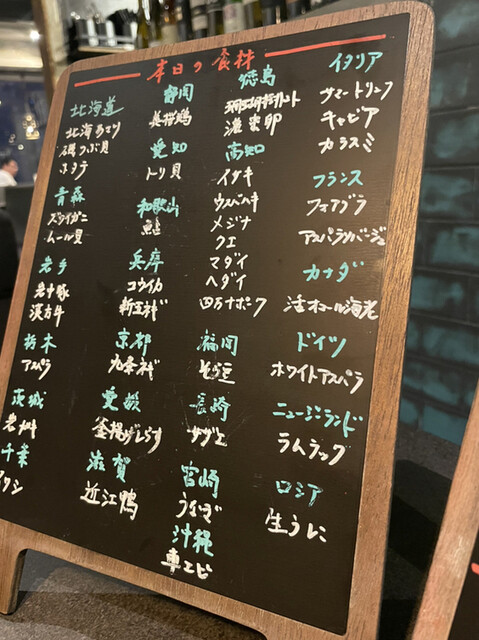 本日の食材
北海道
北海あさり
磯つぶ貝
ホタテ
青森
ズワイガニ
ムール貝
岩手
岩中豚
漢方牛
栃木
アスパラ
茨城
岩牡蛎
千葉
イワシ
静岡
美桜鶏
愛知
トリ貝
和歌山
鮎
兵庫
コウイカ
新玉ねぎ
京都
九条ねぎ
愛媛
釜揚げしらす
滋賀
近江鴨
徳島
濃紫卵
高知
イサキ
ウスバハギ
メジナ
クエ
マダイ
ヘダイ
四万十ポーク
福岡
そら豆
長崎
サザエ
宮崎
うなぎ
沖縄
車エビ
イタリア
サマートリュフ
キャビア
カラスミ
フランス
フォアグラ
アスパラソバージュ
カナダ
活オマール海老
ドイツ
ホワイトアスパラ
ニュージーランド
ラムラック
ロシア
生うに